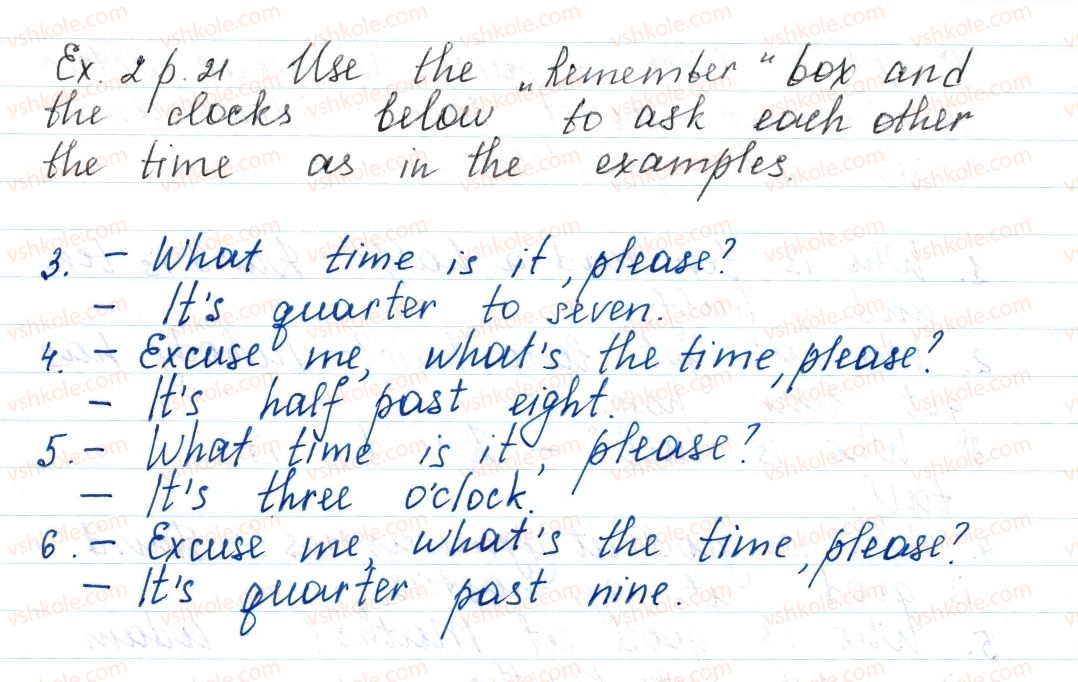 Ex. 2 p. 21 Use the „Remember“ box and
the clocks below to ask each other
the time as in the examples.
3. – What time is it, please?
– It's quarter to seven.
4. – Excuse me, what's the time, please?
– It's half past eight.
5. – What time is it, please?
– It's three o'clock.
6. – Excuse me, what's the time, please?
– It's quarter past nine.